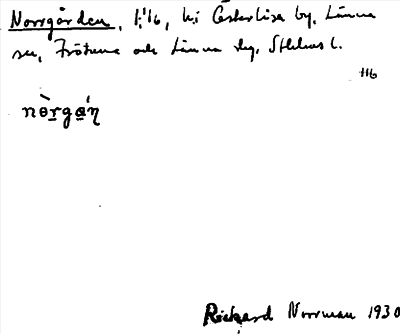 Norrgården, 1:16, hi Österlisa by, Länna
sn, Frötuna och Länna skg, Sthlms l.
HG
nòrgán
Rickard Norrman 1930